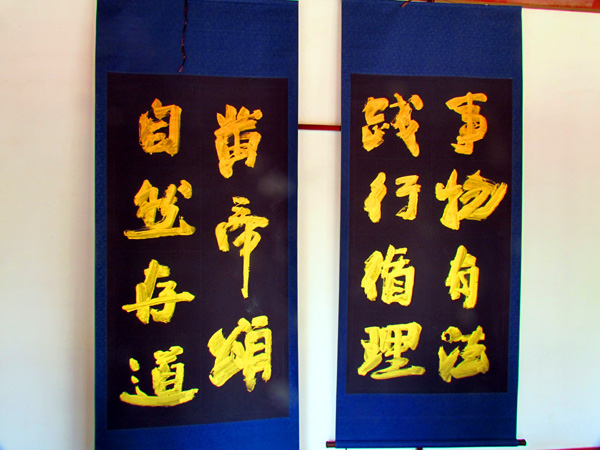 黄帝頌
自然存道
事物有法
践行循理